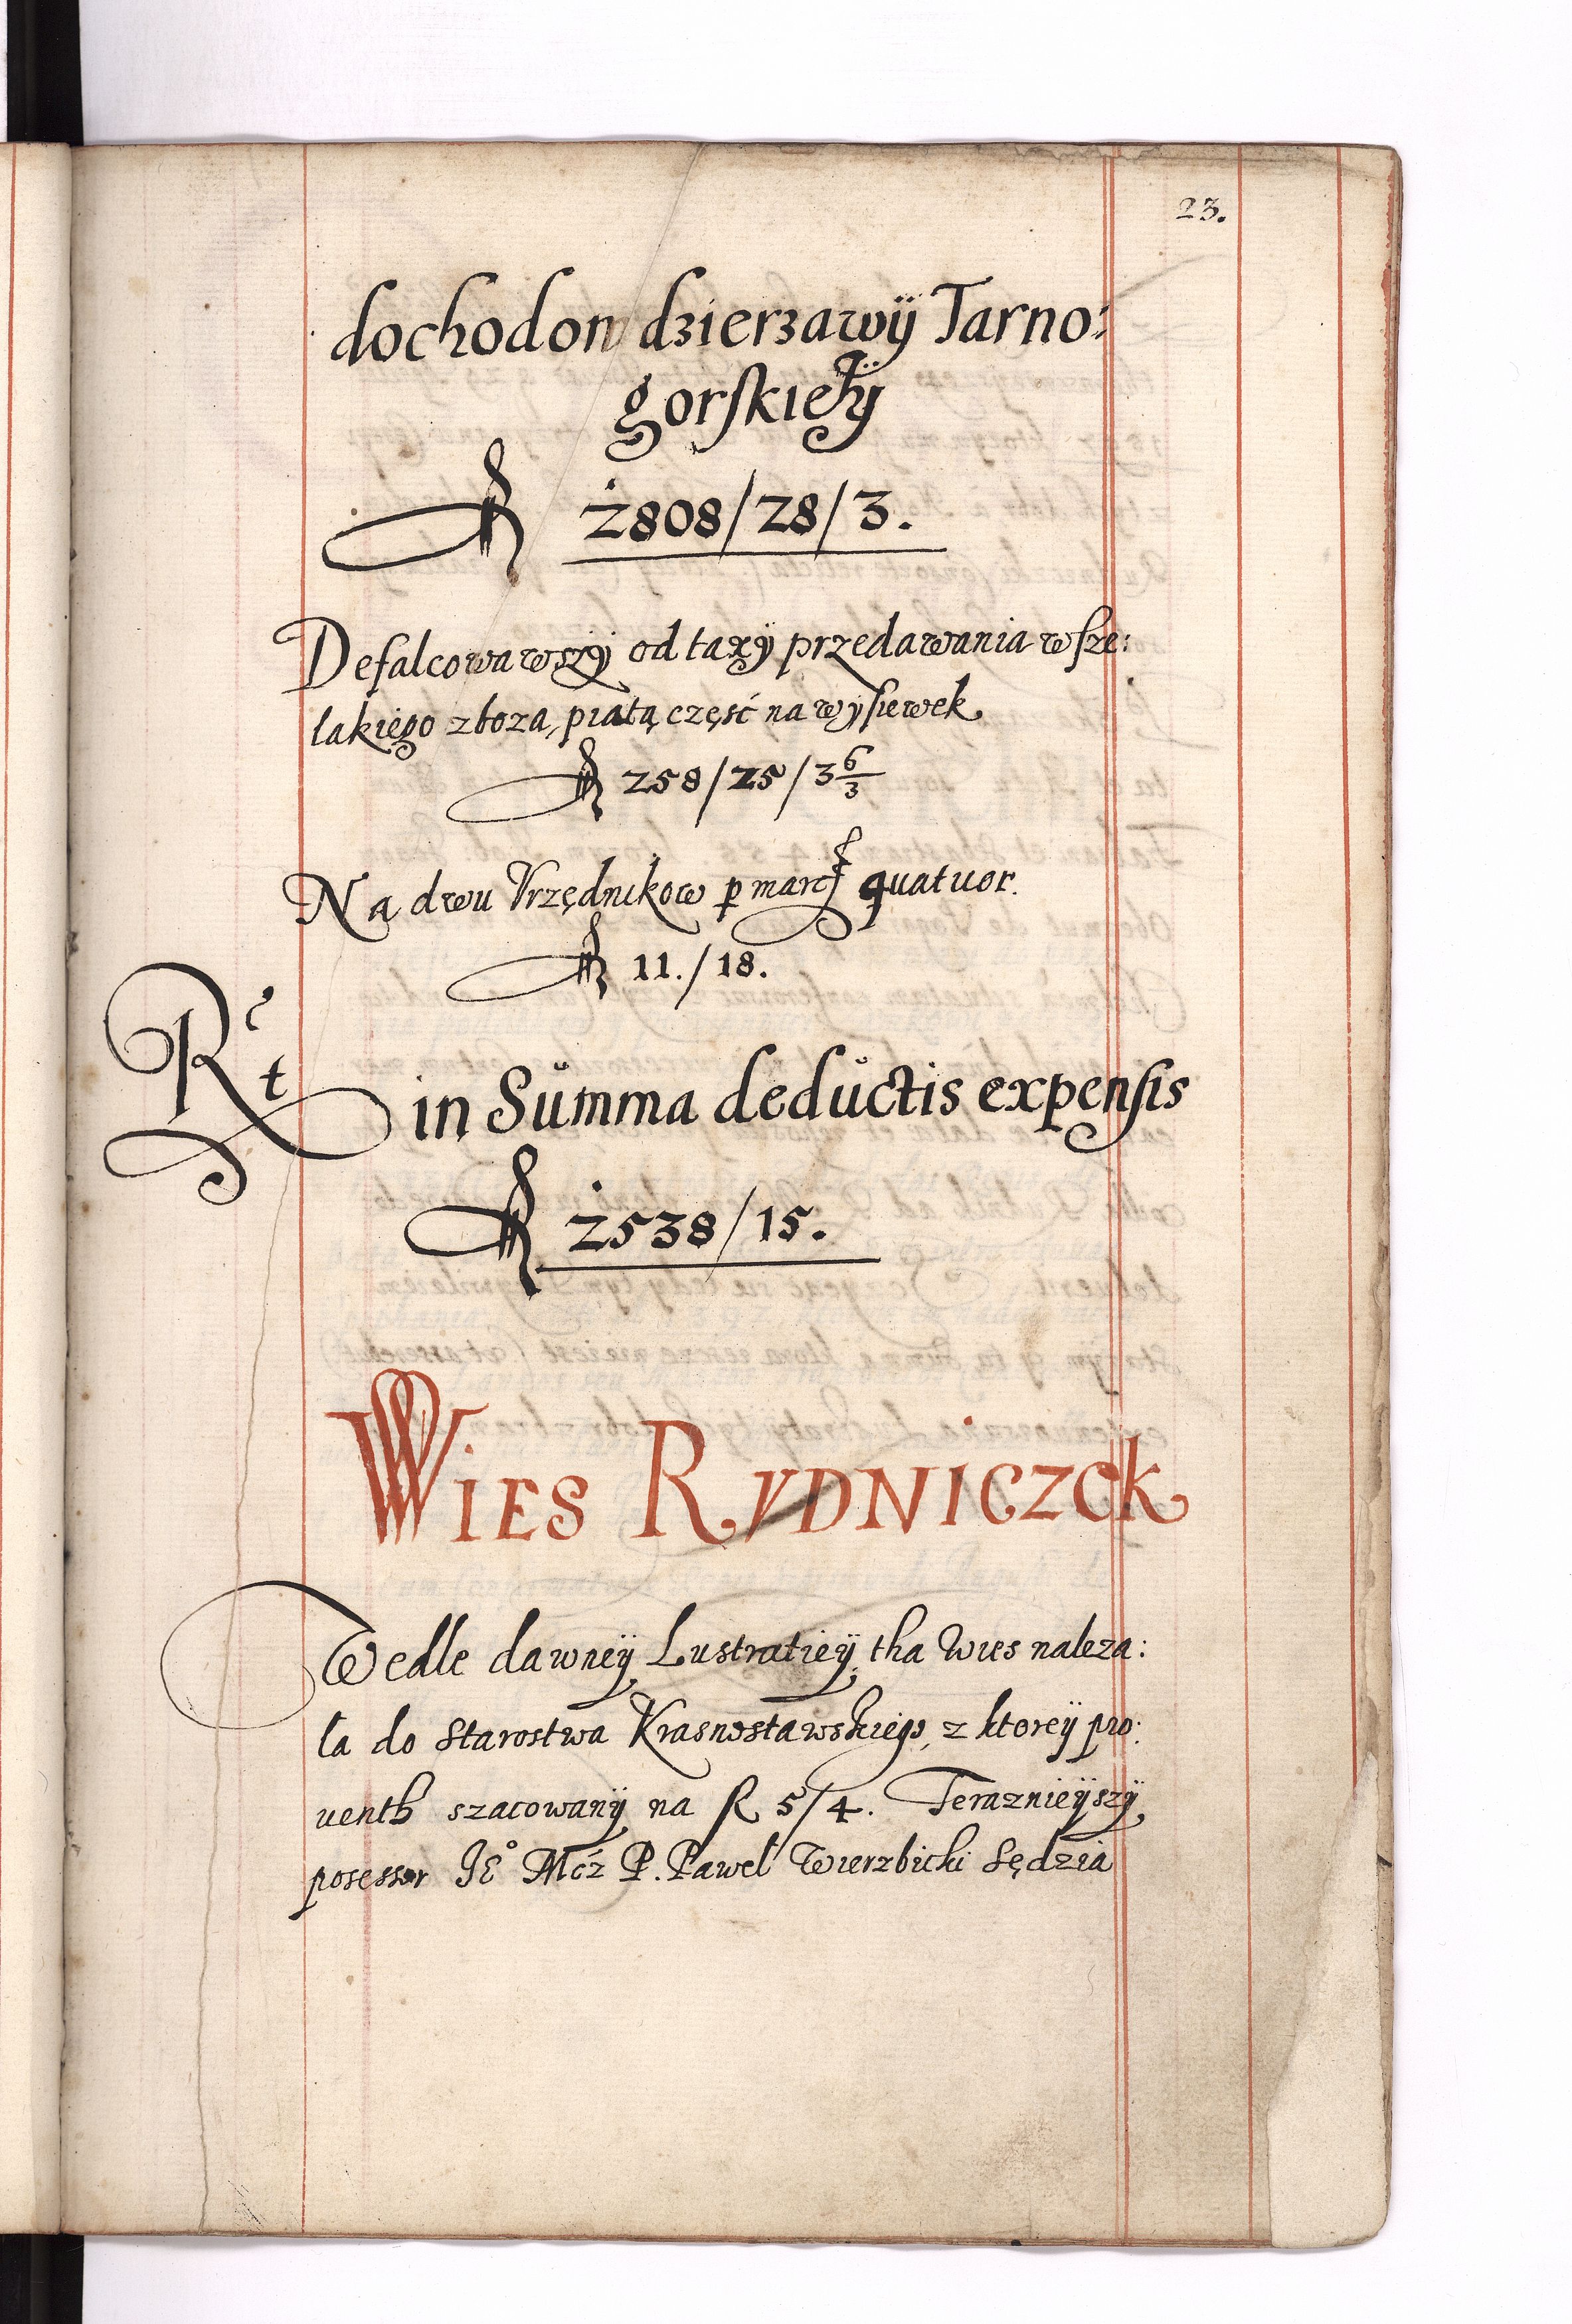 23.
dochodow dzierzawÿ Tarno:
gorskieÿ
fl 2808/28/3.
Defalcowawszÿ od taxÿ przedawania wsze:
lakiego zboza, piątą część na wysiewek
fl 258/25/3 6/3
Na dwu Vrzędnikow p marcs quatuor.
fl 11./18.
Ret in Summa deductis expensis
fl 2538/15.
WIES RVDNICZCK
Wedle dawneÿ Lustratieÿ tha Wies naleza:
la do Starostwa Krasnostawskiego, z ktoreÿ pro:
uenth szacowanÿ na fl 5/4. Teraznieÿszÿ
posessor Je° Mcz P. Pawel Wierzbicki Sędzia